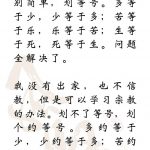 别简单，划等号。多等
于少，少等于多；苦等
于乐，乐等于苦；生等
于死，死等于生。问题
全解决了。
我没有出家，也不信
教，但是可以学习宗教
的办法。划不了等号，划
个约等号。多约等于
少，少约等于多；苦